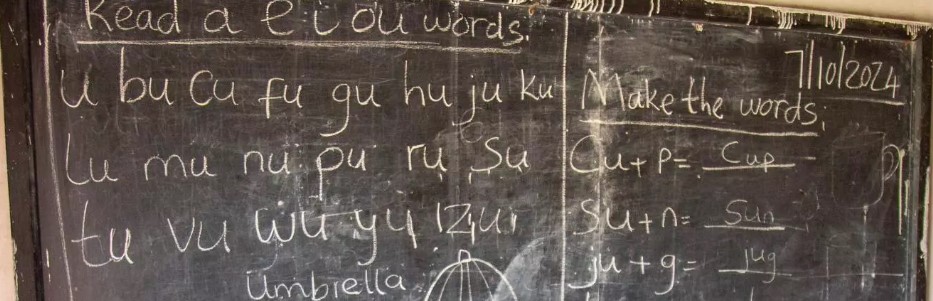 Read a e i ou words.
u bu cu fu gu hu ju ku
Lu mu nu pu ru su
tu vu wu yu zu
Umbrella
7/10/2024
Make the words;
Cu+p= Cup
Su+n= Sun
ju+g= jug